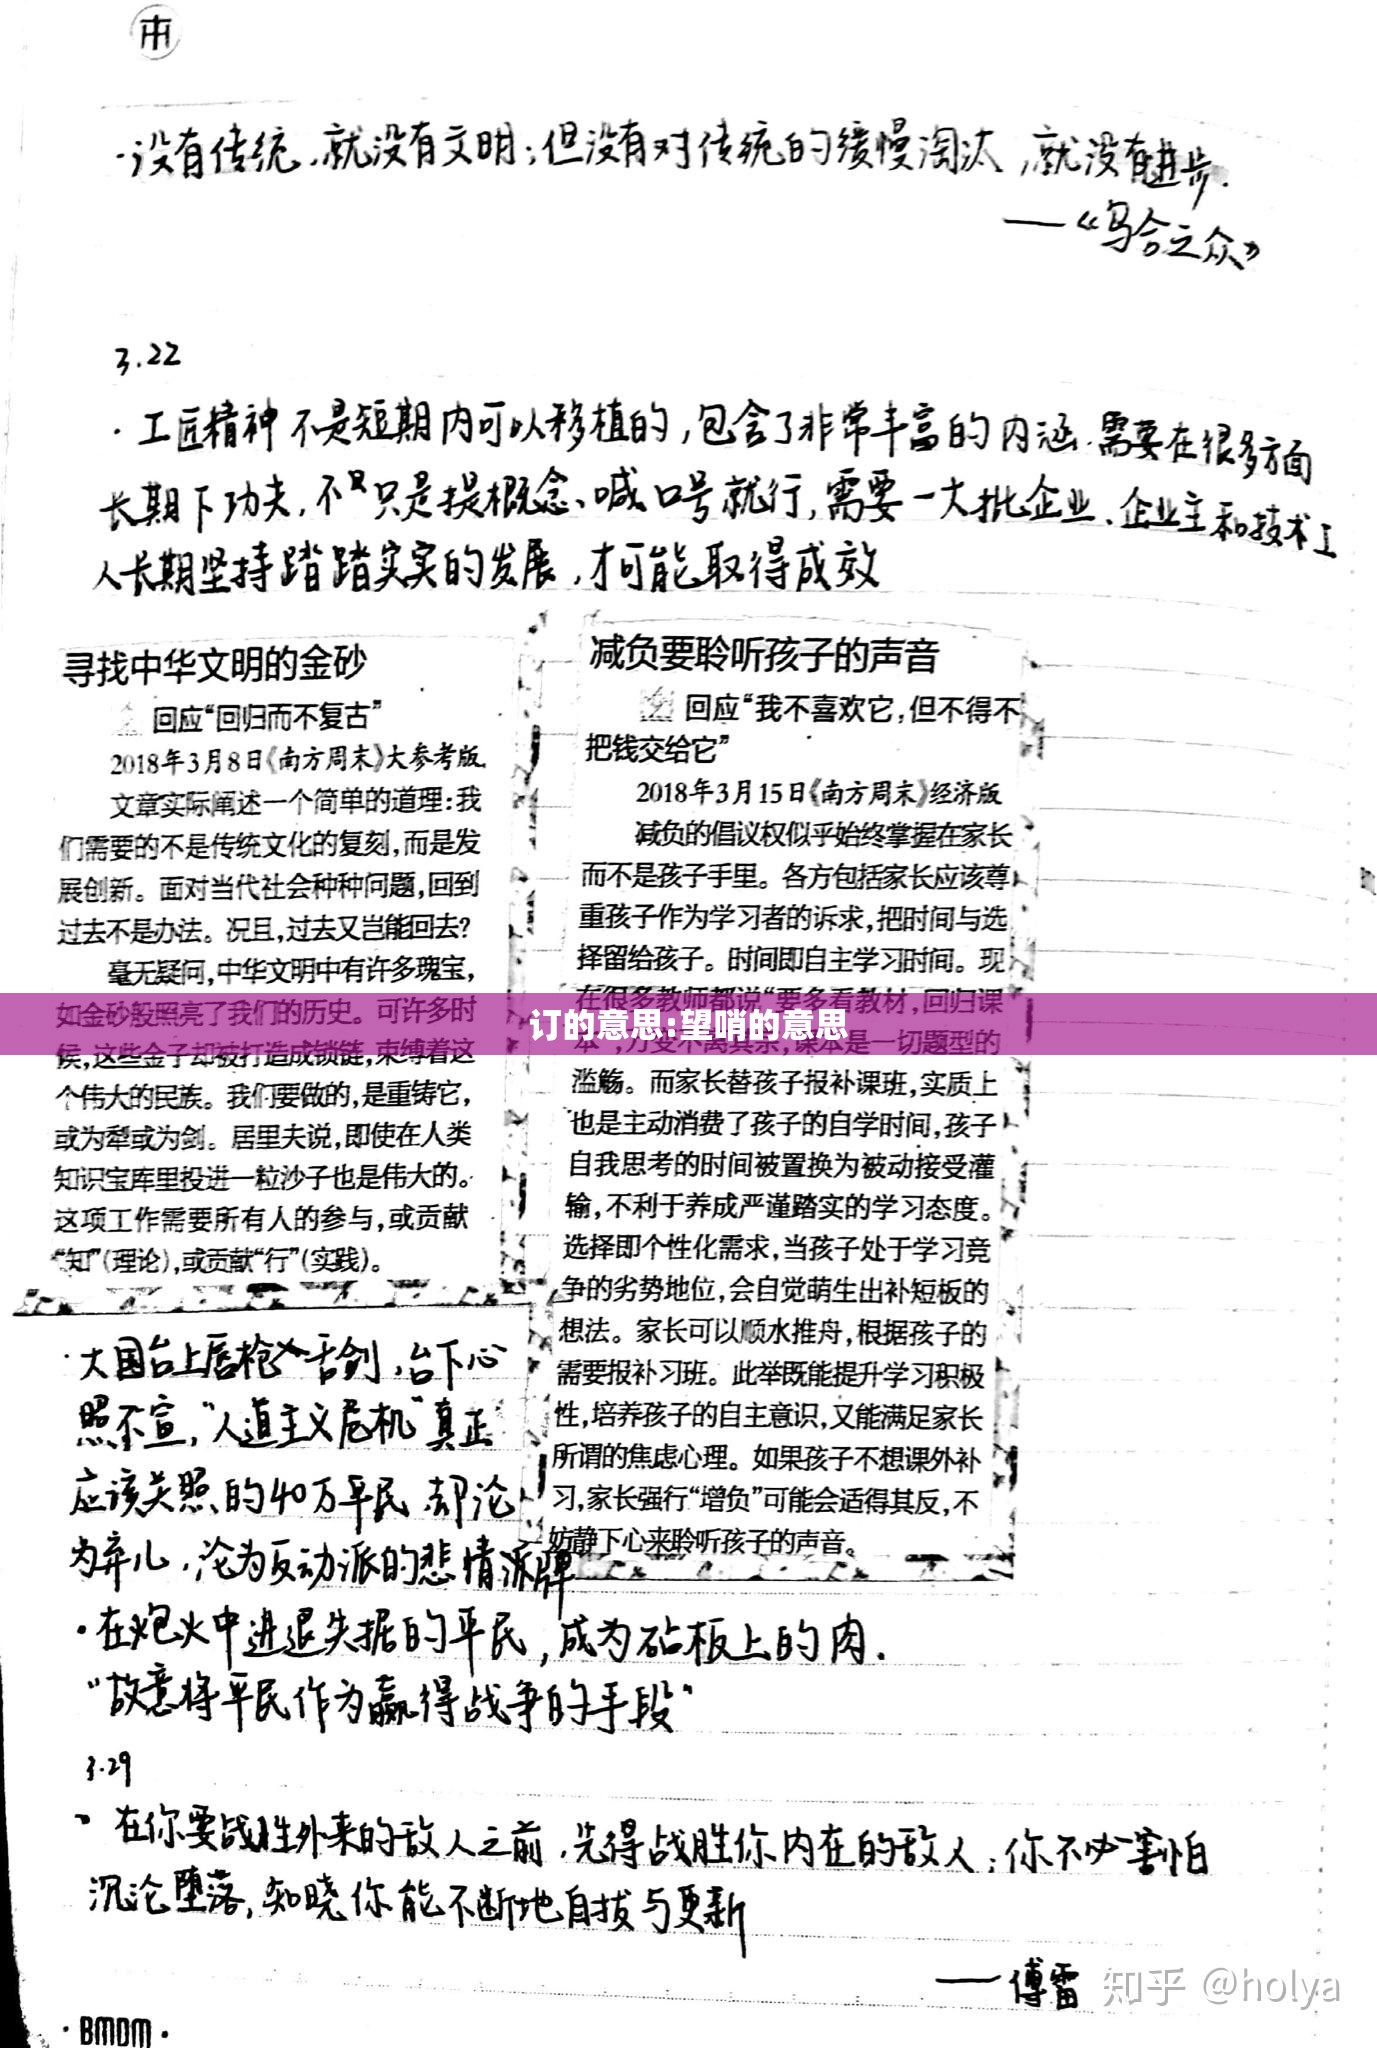 ·没有传统,就没有文明;但没有对传统的缓慢淘汰,就没有进步.
——《乌合之众》
3.22
·工匠精神不是短期内可以移植的,包含了非常丰富的内涵.需要在很多方面
长期下功夫,不只是提概念、喊口号就行,需要一大批企业、企业主和技术工
人长期坚持踏踏实实的发展,才可能取得成效
寻找中华文明的金砂
回应“回归而不复古”
2018年3月8日《南方周末》大参考版
文章实际阐述一个简单的道理:我
们需要的不是传统文化的复刻,而是发
展创新。面对当代社会种种问题,回到
过去不是办法。况且,过去又岂能回去?
毫无疑问,中华文明中有许多瑰宝,
如金砂般照亮了我们的历史。可许多时
候,这些金子却被打造成锁链,束缚着这
个伟大的民族。我们要做的,是重铸它,
或为犁或为剑。居里夫说,即使在人类
知识宝库里投进一粒沙子也是伟大的。
这项工作需要所有人的参与,或贡献
“知”(理论),或贡献“行”(实践)。
减负要聆听孩子的声音
回应“我不喜欢它,但不得不
把钱交给它”
2018年3月15日《南方周末》经济版
减负的倡议权似乎始终掌握在家长
而不是孩子手里。各方包括家长应该尊
重孩子作为学习者的诉求,把时间与选
择留给孩子。时间即自主学习时间。现
在很多教师都说“要多看教材,回归课
本”,万变不离其宗,课本是一切题型的
滥觞。而家长替孩子报补课班,实质上
也是主动消费了孩子的自学时间,孩子
自我思考的时间被置换为被动接受灌
输,不利于养成严谨踏实的学习态度。
选择即个性化需求,当孩子处于学习竞
争的劣势地位,会自觉萌生出补短板的
想法。家长可以顺水推舟,根据孩子的
需要报补习班。此举既能提升学习积极
性,培养孩子的自主意识,又能满足家长
所谓的焦虑心理。如果孩子不想课外补
习,家长强行“增负”可能会适得其反,不
妨静下心来聆听孩子的声音。
订的意思:望哨的意思
·大国台上唇枪舌剑,台下心
照不宣,“人道主义危机”真正
应该关照的40万平民 却沦
为弃儿,沦为反动派的悲情派牌
·在炮火中进退失据的平民,成为砧板上的肉.
“故意将平民作为赢得战争的手段”
3.29
、在你要战胜外来的敌人之前,先得战胜你内在的敌人;你不必害怕
沉沦堕落,知晓你能不断地自拔与更新
——傅雷
知乎 @holya
·BMDM·